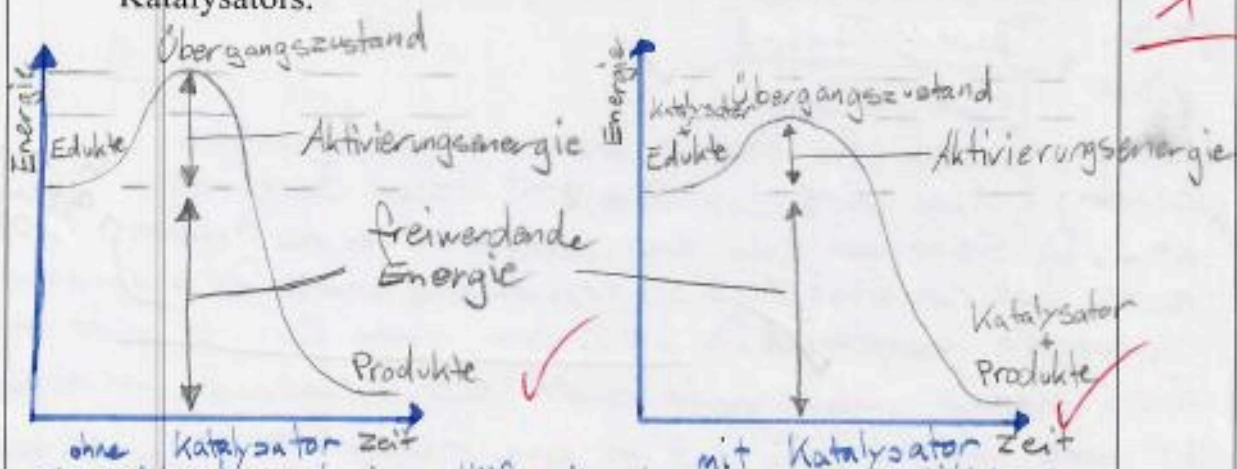 Katalysators.
1
Übergangszustand
Energie
Edukte
Aktivierungsenergie
freiwerdende
Energie
Produkte
ohne Katalysator Zeit
Energie
Katalysator
+
Edukte
Übergangszustand
Aktivierungsenergie
Katalysator
+
Produkte
mit Katalysator Zeit